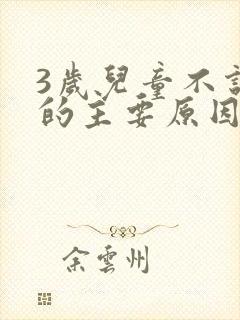 3歲兒童不
的主要原因
余雲州